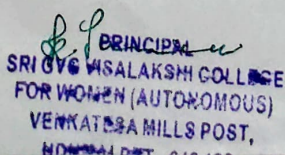 PRINCIPAL
SRI GVG VISALAKSHI COLLEGE
FOR WOMEN (AUTONOMOUS)
VENKATESA MILLS POST,